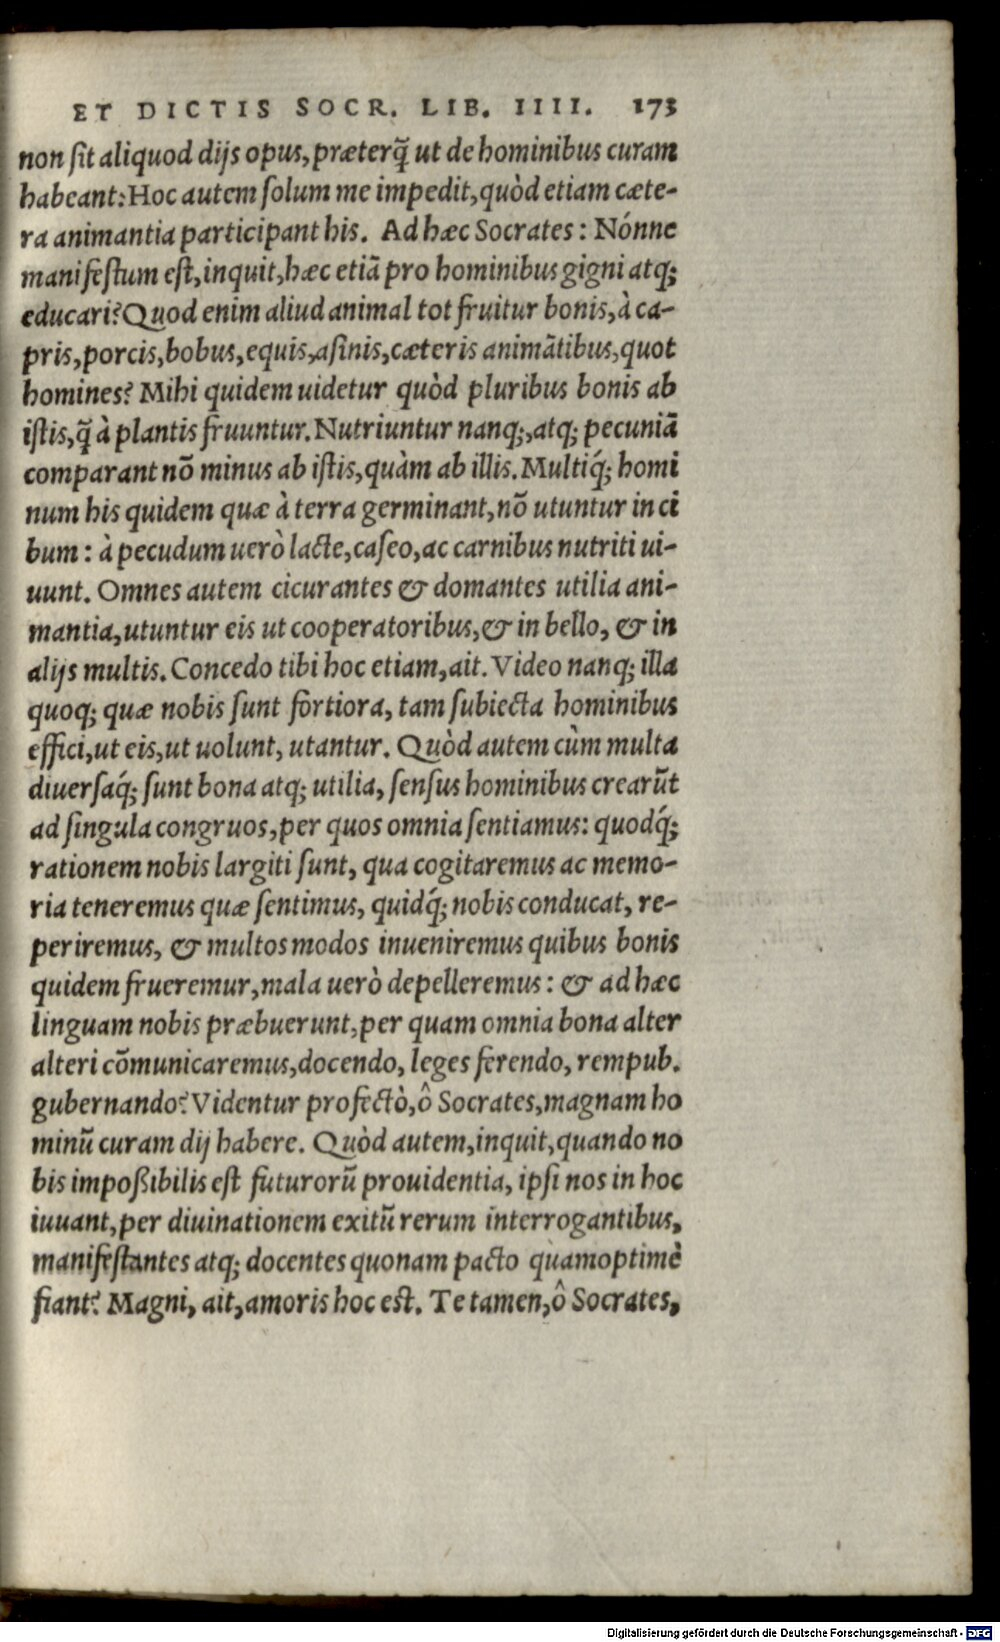 ET DICTIS SOCR. LIB. IIII. 173
non ſit aliquod dijs opus, præterq̃ ut de hominibus curam
habeant: Hoc autem ſolum me impedit, quòd etiam cæte-
ra animantia participant his. Ad hæc Socrates: Nónne
manifeſtum eſt, inquit, hæc etiã pro hominibus gigni atq;
educari? Quod enim aliud animal tot fruitur bonis, à ca-
pris, porcis, bobus, equis, aſinis, cæteris animãtibus, quot
homines? Mihi quidem uidetur quòd pluribus bonis ab
iſtis, q̃ à plantis fruuntur. Nutriuntur nanq;, atq; pecuniã
comparant nõ minus ab iſtis, quàm ab illis. Multiq́; homi
num his quidem quæ à terra germinant, nõ utuntur in ci
bum: à pecudum uerò lacte, caſeo, ac carnibus nutriti ui-
uunt. Omnes autem cicurantes & domantes utilia ani-
mantia, utuntur eis ut cooperatoribus, & in bello, & in
alijs multis. Concedo tibi hoc etiam, ait. Video nanq; illa
quoq; quæ nobis ſunt fortiora, tam ſubiecta hominibus
effici, ut eis, ut uolunt, utantur. Quòd autem cùm multa
diuerſaq́; ſunt bona atq; utilia, ſenſus hominibus crearũt
ad ſingula congruos, per quos omnia ſentiamus: quodq́;
rationem nobis largiti ſunt, qua cogitaremus ac memo-
ria teneremus quæ ſentimus, quidq́; nobis conducat, re-
periremus, & multos modos inueniremus quibus bonis
quidem frueremur, mala uerò depelleremus: & ad hæc
linguam nobis præbuerunt, per quam omnia bona alter
alteri cõmunicaremus, docendo, leges ferendo, rempub.
gubernando? Videntur profectò, ô Socrates, magnam ho
minũ curam dij habere. Quòd autem, inquit, quando no
bis impoßibilis eſt futurorũ prouidentia, ipſi nos in hoc
iuuant, per diuinationem exitũ rerum interrogantibus,
manifeſtantes atq; docentes quonam pacto quamoptimè
fiant? Magni, ait, amoris hoc est. Te tamen, ô Socrates,
Digitalisierung gefördert durch die Deutsche Forschungsgemeinschaft - DFG